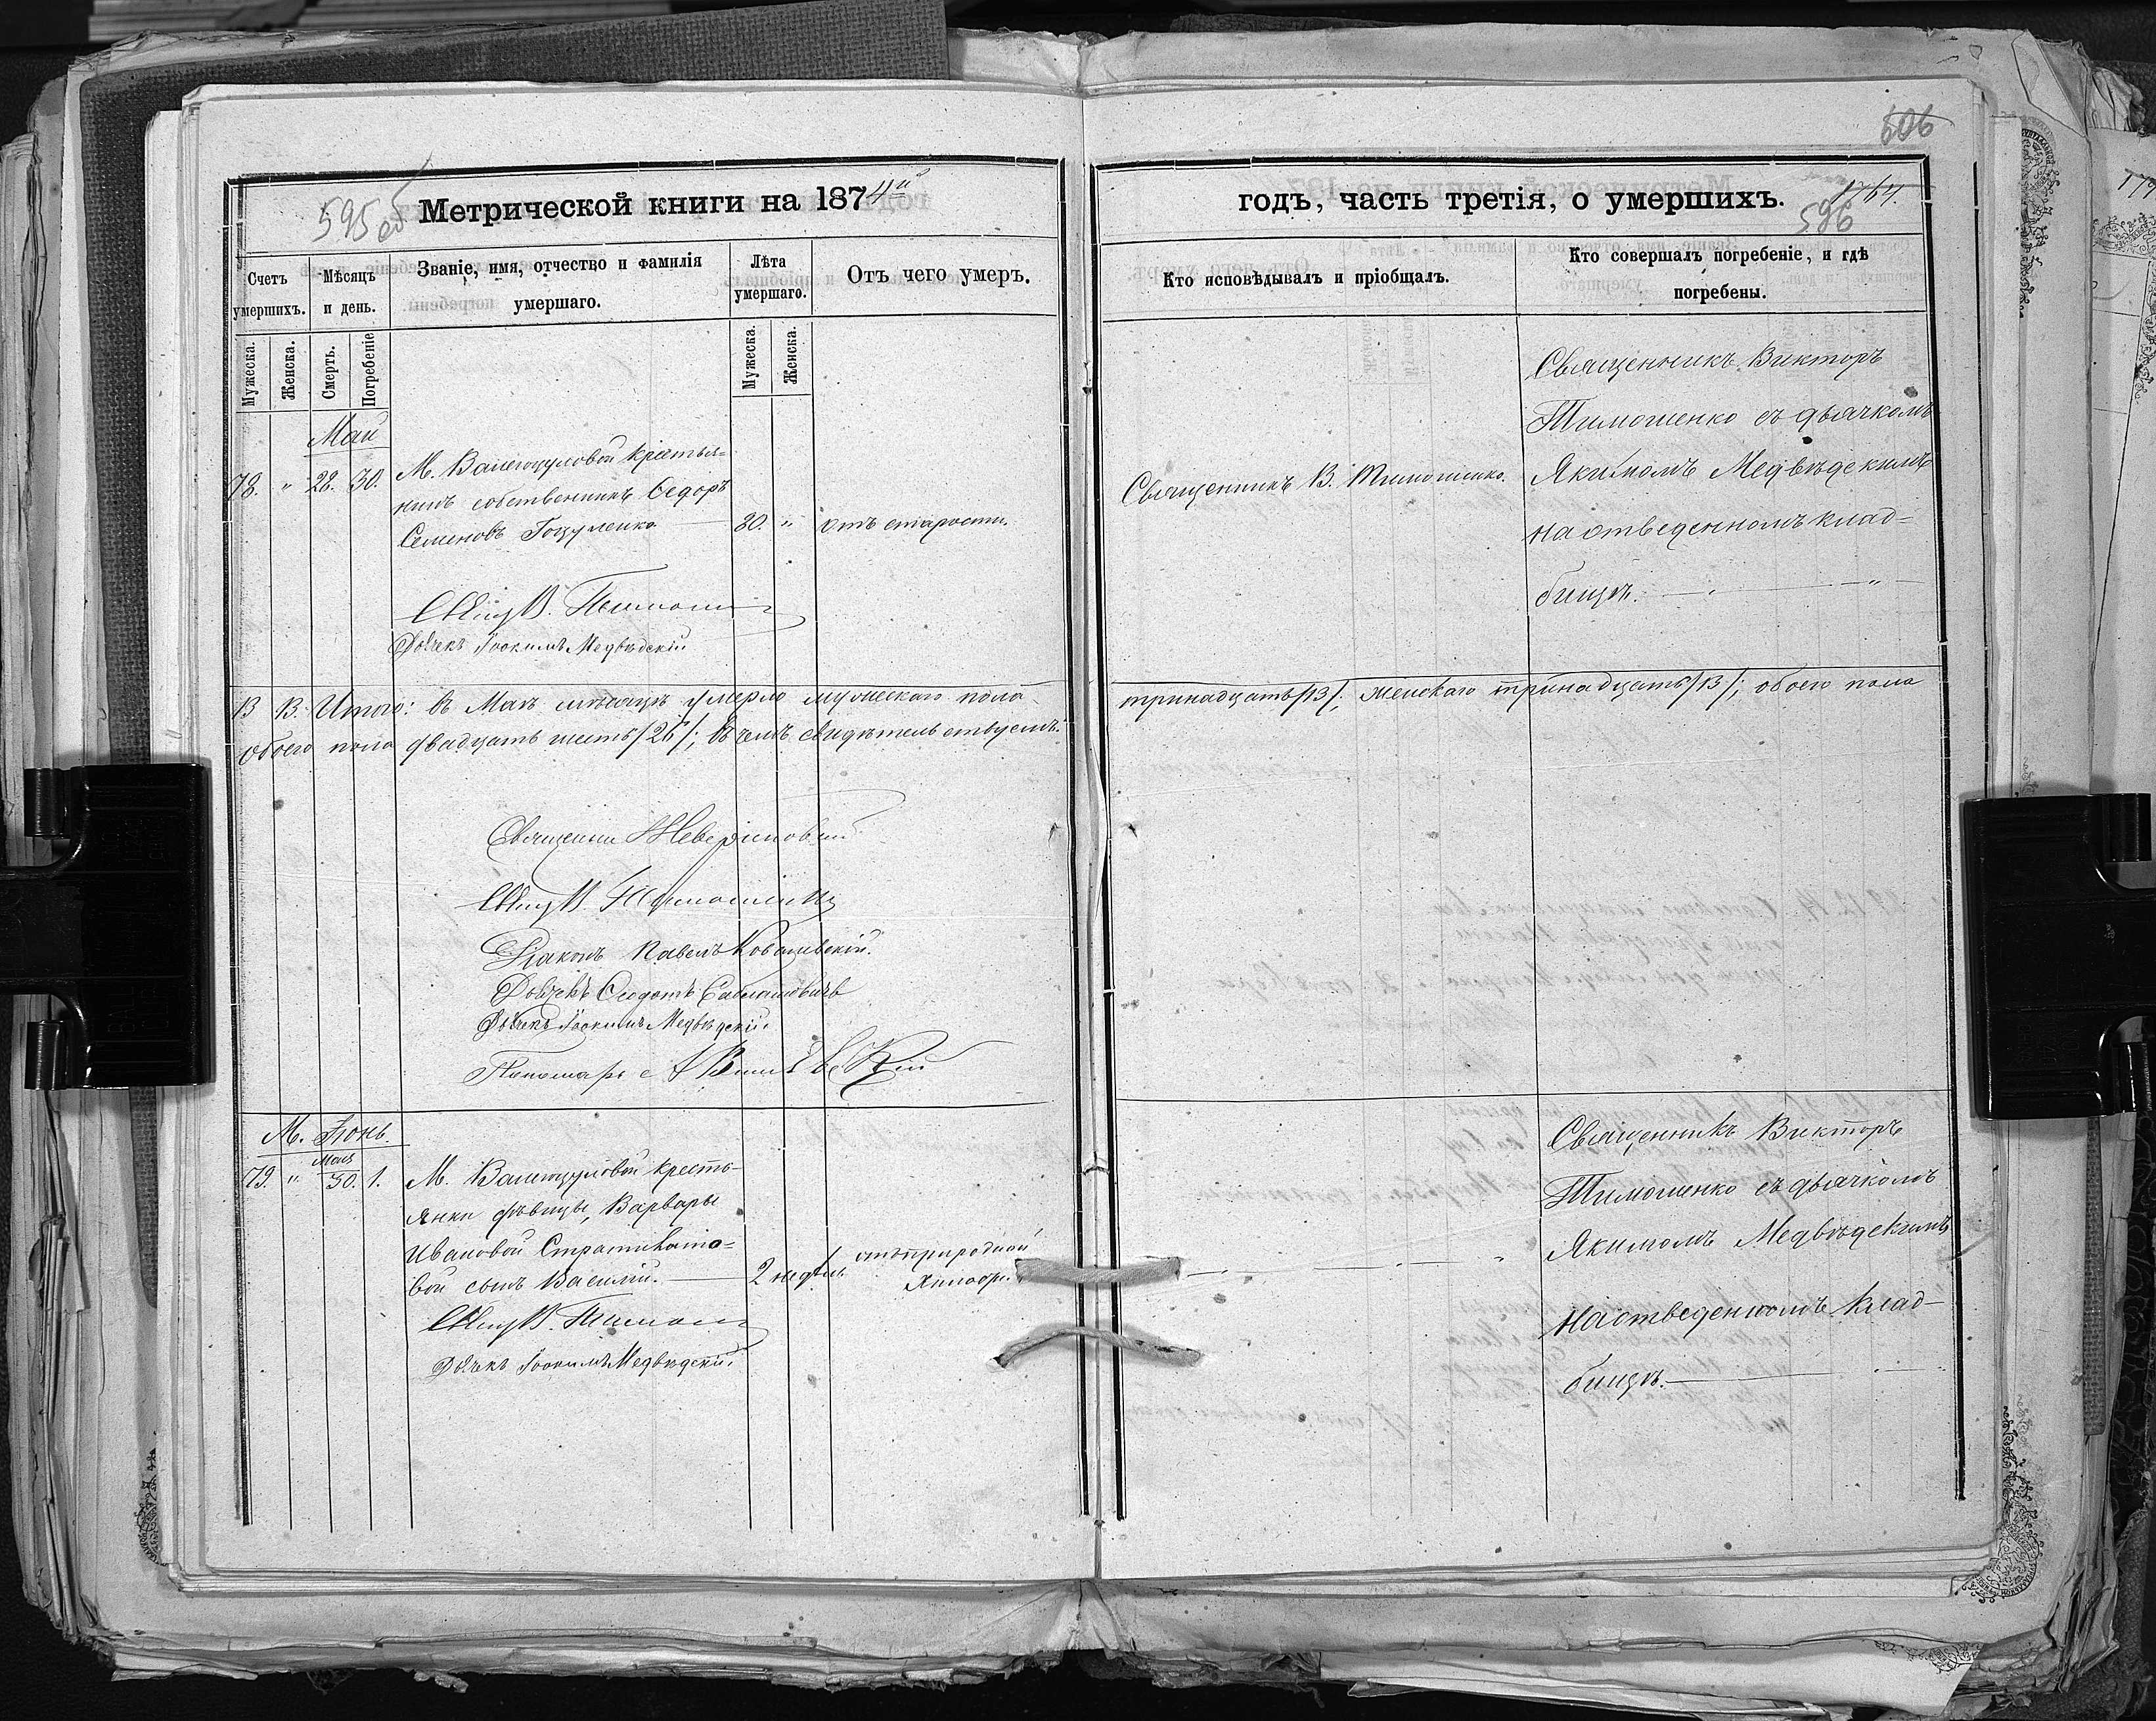 606
595 об
Метрической книги на 1874й
Счетъ умершихъ.
Мѣсяцъ и день.
Званіе, имя, отчество и фамилія умершаго.
Лѣта умершаго.
Отъ чего умеръ.
Мужеска.
Женска.
Смерть.
Погребеніе
Мужеска.
Женска.
Май
78. " 28. 30.
М. Валегоцуловой крестья=
нинъ собственникъ Ѳедоръ
Семеновъ Гоцуленко 80. " отъ старости.
Свящ В. Тимоше
Дьячекъ Іоокимъ Медвѣдскій
13 13. Итого: въ Маѣ мѣсяцѣ умерло мужескаго пола
обоего пола двадцать шесть /26/; въ чемъ свидѣтельствуемъ.
Свящ В. Тимошенко
Діаконъ Павелъ Ковалевскій.
Дьячекъ Ѳеодотъ
Дьячекъ Іоокимъ Медвѣдскій.
Пономарь
М. Іюнь.
Мая
79. " 30. 1.
М. Валегоцуловой кресть-
янки дѣвицы, Варвары
Ивановой Стратикато=
вой сынъ Василій. 2 недѣл. отъ природной
Свящ В. Тимош
Дьячекъ Іоокимъ Медвѣдскій.
годъ, часть третія, о умершихъ.
1764.
596
Кто исповѣдывалъ и пріобщалъ.
Кто совершалъ погребеніе, и гдѣ
погребены.
Священникъ В. Тимошенко.
Священникъ Викторъ
Тимошенко съ дьячкомъ
Якимомъ Медвѣдскимъ
на отведенномъ клад=
бищѣ.
тринадцать /13/; женскаго тринадцать /13/; обоего пола
Священникъ Викторъ
Тимошенко съ дьячкомъ
Якимомъ Медвѣдскимъ
на отведенномъ клад-
бищѣ.